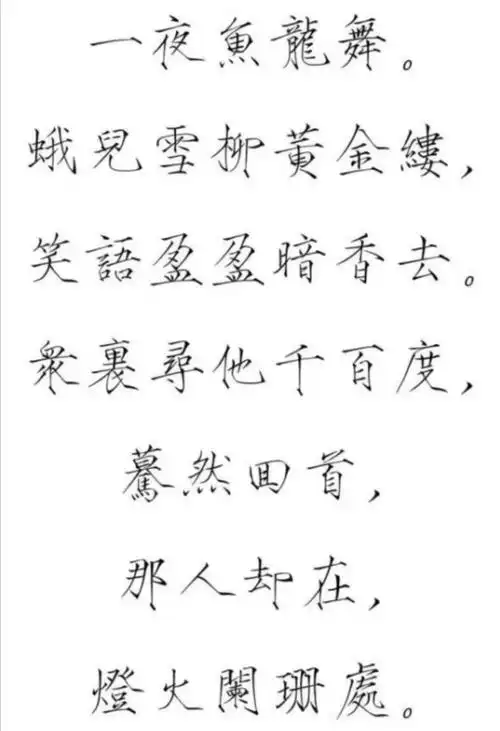 一夜魚龍舞。
蛾兒雪柳黃金縷，
笑語盈盈暗香去。
衆裏尋他千百度，
驀然回首，
那人却在，
燈火闌珊處。